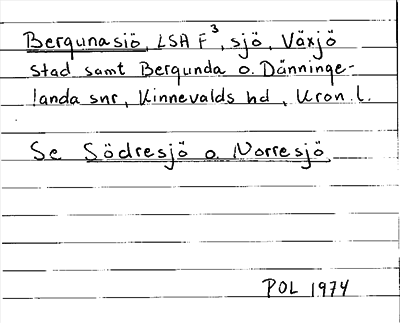 Bergunasjö, LSA F³, sjö, Växjö
stad samt Bergunda o. Dänninge-
landa snr, Kinnevalds hd, Kron. l.
Se Södresjö o. Norresjö
POL 1974